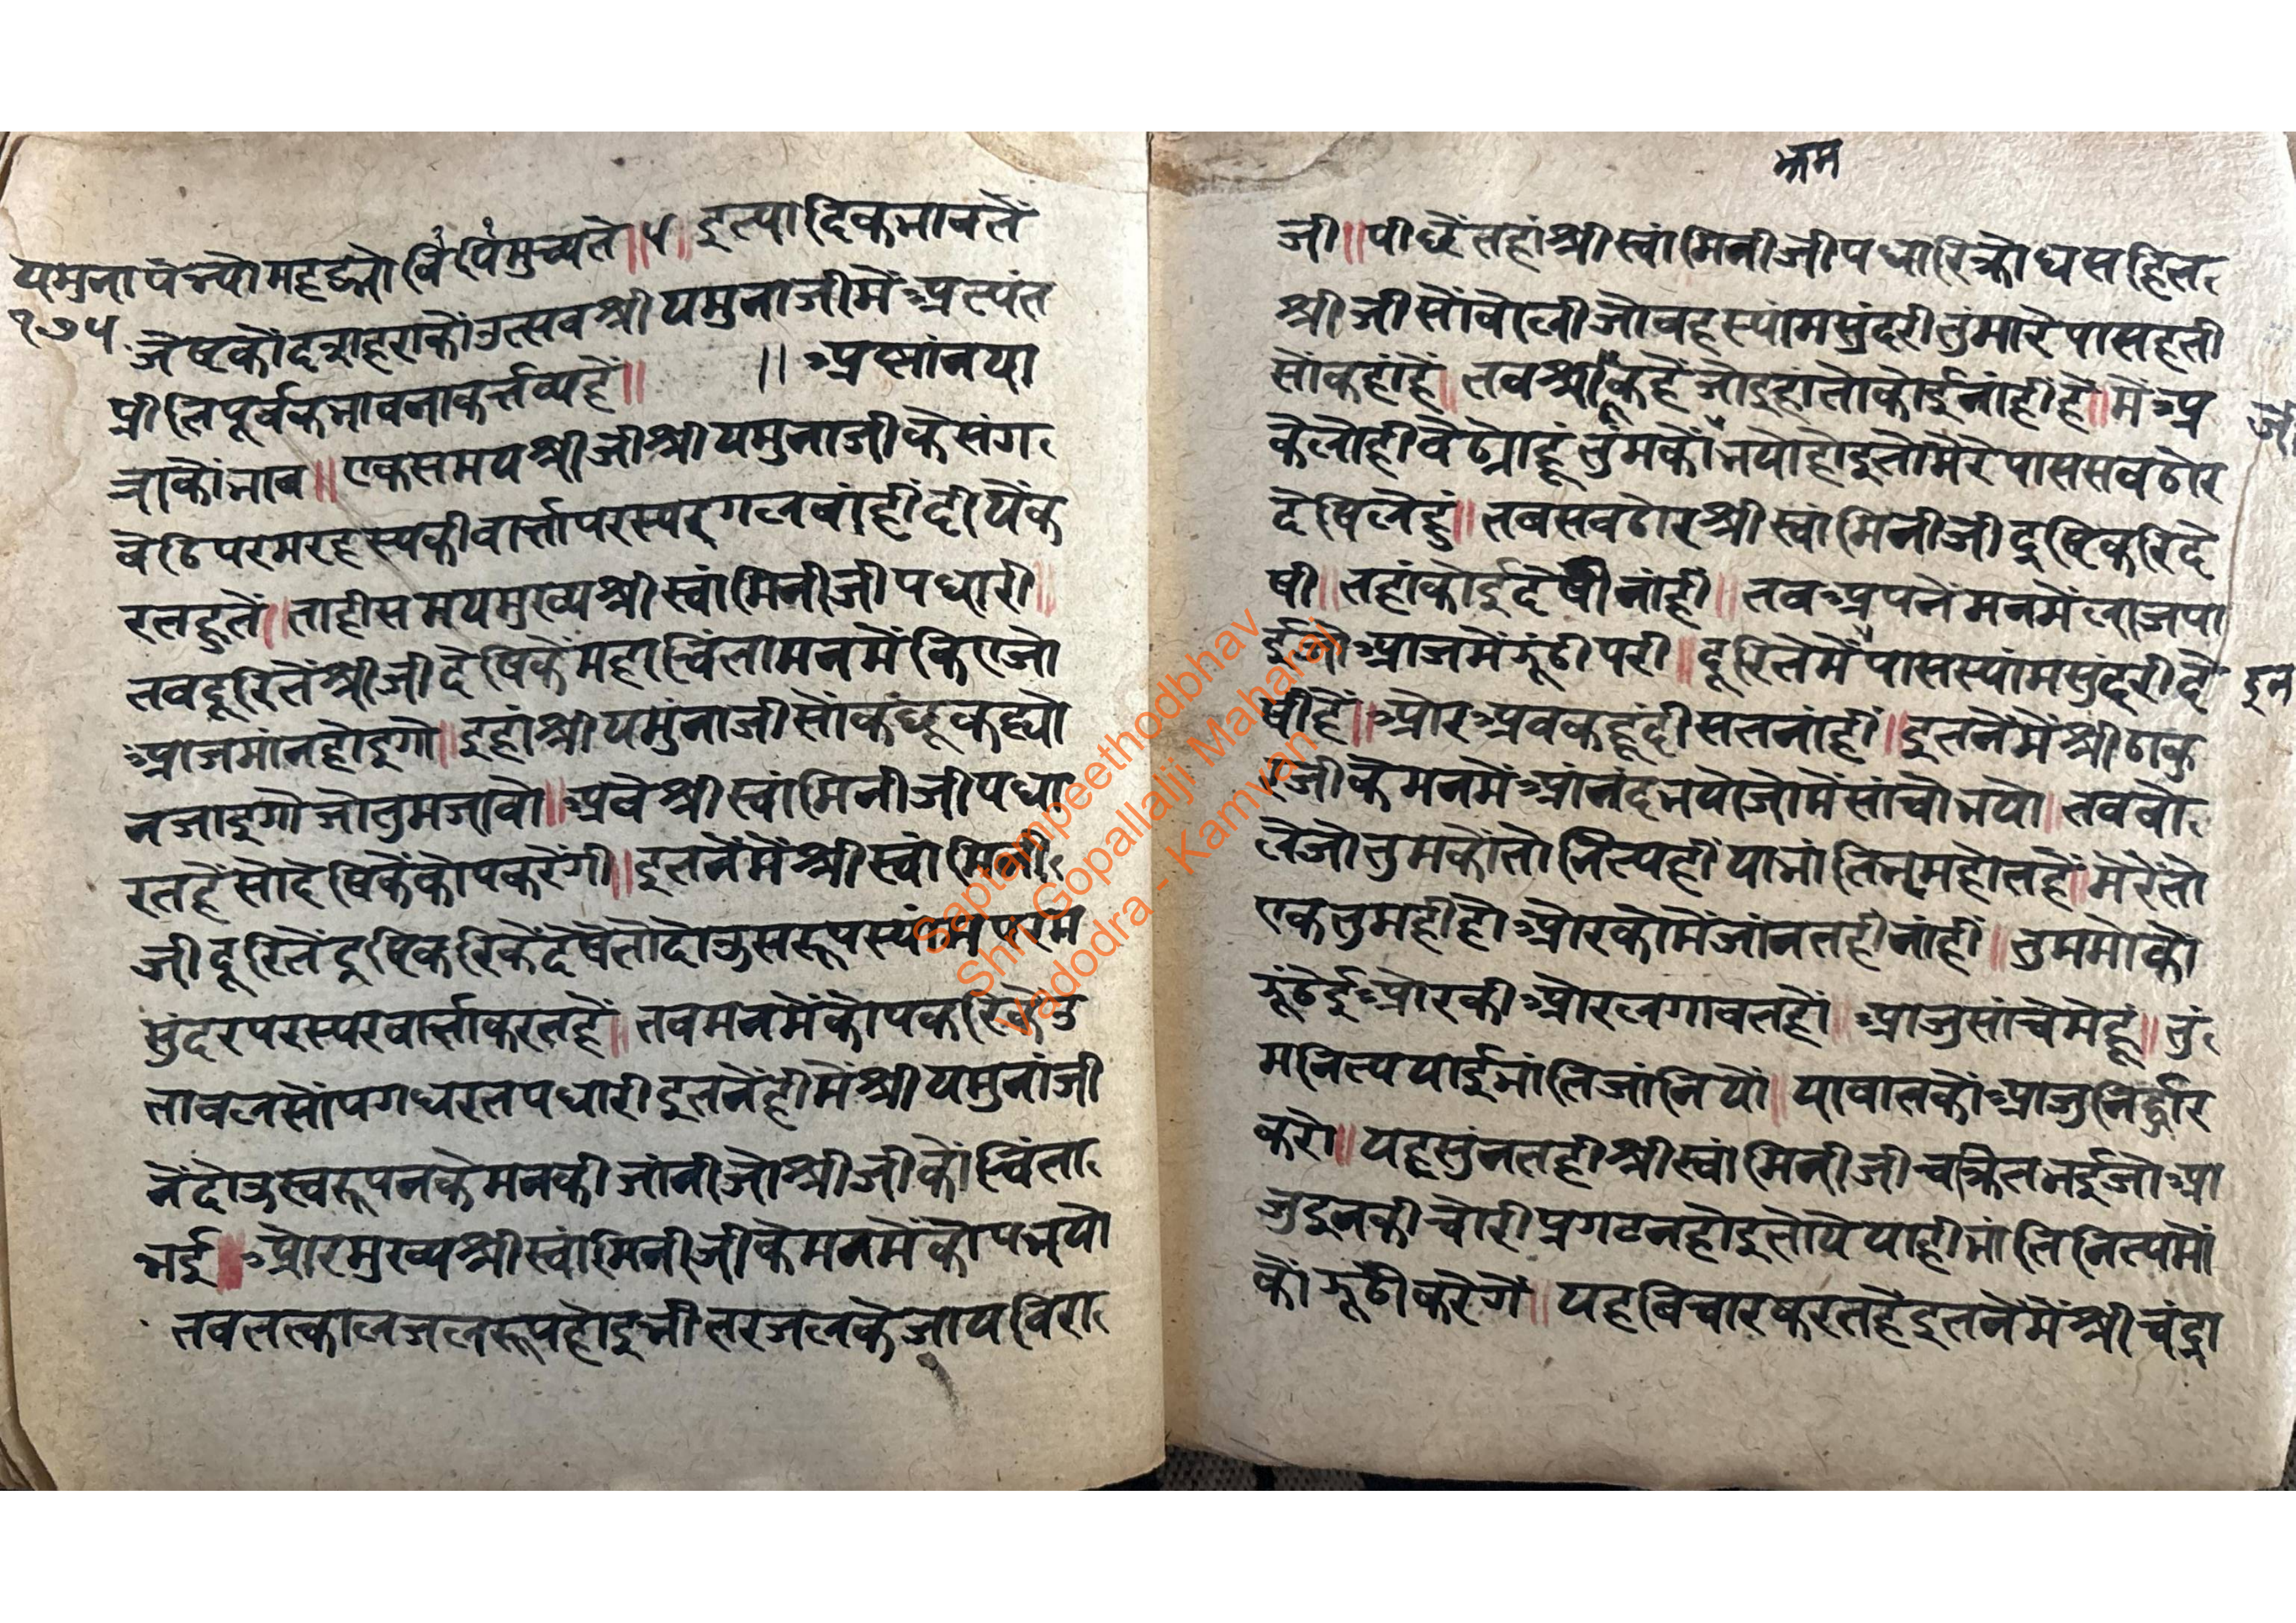 यमुना पंच्यौ महद्भ्नो र्वि र्पिमुच्यते ॥५॥ इत्यादिकभावतें
१७५
जेष्टकौं दशहराकौं उत्सव श्री यमुनाजीमें अत्यंत
प्रीतिपूर्वक भावना कर्त्तव्य हैं॥ ॥ अस्नांनया
त्राकौं भाव॥ एकसमय श्रीजी श्री यमुनाजी के संग
बेठि परम रहस्य की वार्त्ता परस्पर गलबांहीं दीयें क
रतहुतें॥ ताही समय मुख्य श्री स्वांमिनीजी पधारी॥
तब दूरितें श्रीजी देषिकें महा चिंता मनमें कि एजो
आज मांन होइगो॥ इहां श्री यमुंनाजी सों कछू कह्यो
न जाइगो जो तुम जावो॥ अबे श्री स्वांमिनीजी पधा
रत हें सो देषिकें कोप करेंगी॥ इतनेंमें श्री स्वांमिनी
जी दूरितें दुषिकरिकें देषे तो दोऊ सरूप स्यांम परम
सुंदर परस्पर वार्त्ता करत हें॥ तब मनमें कोप करिकें उ
तावल सों पग धरत पधारी इतनेंहीमें श्री यमुनांजी
नें दोऊ स्वरूपनके मनकी जांनी जो श्रीजीकों चिंता
भई॥ और मुख्य श्री स्वांमिनीजी के मनमें कोप भयो
तब तत्काल जलरूप होइ भीतर जल के जाय बिरा
क्रम
जी॥ पीछें तहां श्री स्वांमिनीजी पधारि क्रोध सहित
श्रीजी सों बोली जो वह स्यांम सुंदरी तुंमारे पास हती
सों कहां हें॥ तब श्रीजी कहें जो इहां तो कोई नांहीं हे॥ में अ
जी
केलोही बेठ्योहूं तुमकों भयो होइ तो मेरे पास सब ठोर
देषि लेहु॥ तब सब ठोर श्री स्वांमिनीजी दुषिकरि दे
षी॥ तहां कोई देषी नांहीं॥ तब अपनें मनमें लाज पा
ई जो आज में झूंठी परी॥ दूरितें में पास स्यांम सुंदरी दे
इन
षी हें॥ और अब कहूं दीसत नांहीं॥ इतनेंमें श्री ठाकु
रजी के मनमें आंनंद भयो जो में सांचो भयो॥ तब बो
ले जो तुमकों तो नित्य हीं या भांति भ्रम होत हें॥ मेरें तो
एक तुमही हो और कों में जांनत ही नांहीं॥ तुम मोकों
झूंठेई और की और लगावत हो॥ आजु सांचे में हूं॥ तुं
म नित्य याई भांति जांनियों॥ या बातकों आजु निर्द्धार
करो॥ यह सुंनत ही श्री स्वांमिनीजी चक्रित भई जो आ
जु इनकी चोरी प्रगट न होइ तो ये याही भांति नित्य मों
कों झूठी करेगें॥ यह बिचार करत हे इतनेंमें श्री चंद्रा